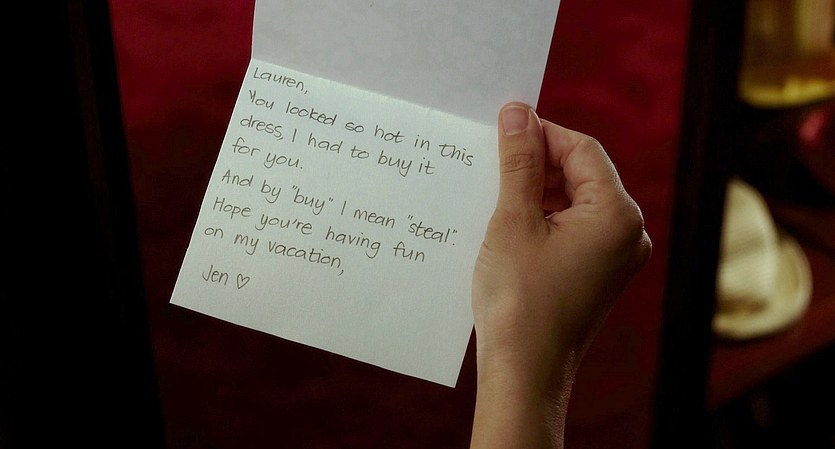 Lauren,
You looked so hot in this
dress, I had to buy it
for you.
And by "buy" I mean "steal".
Hope you're having fun
on my vacation,
Jen ♡